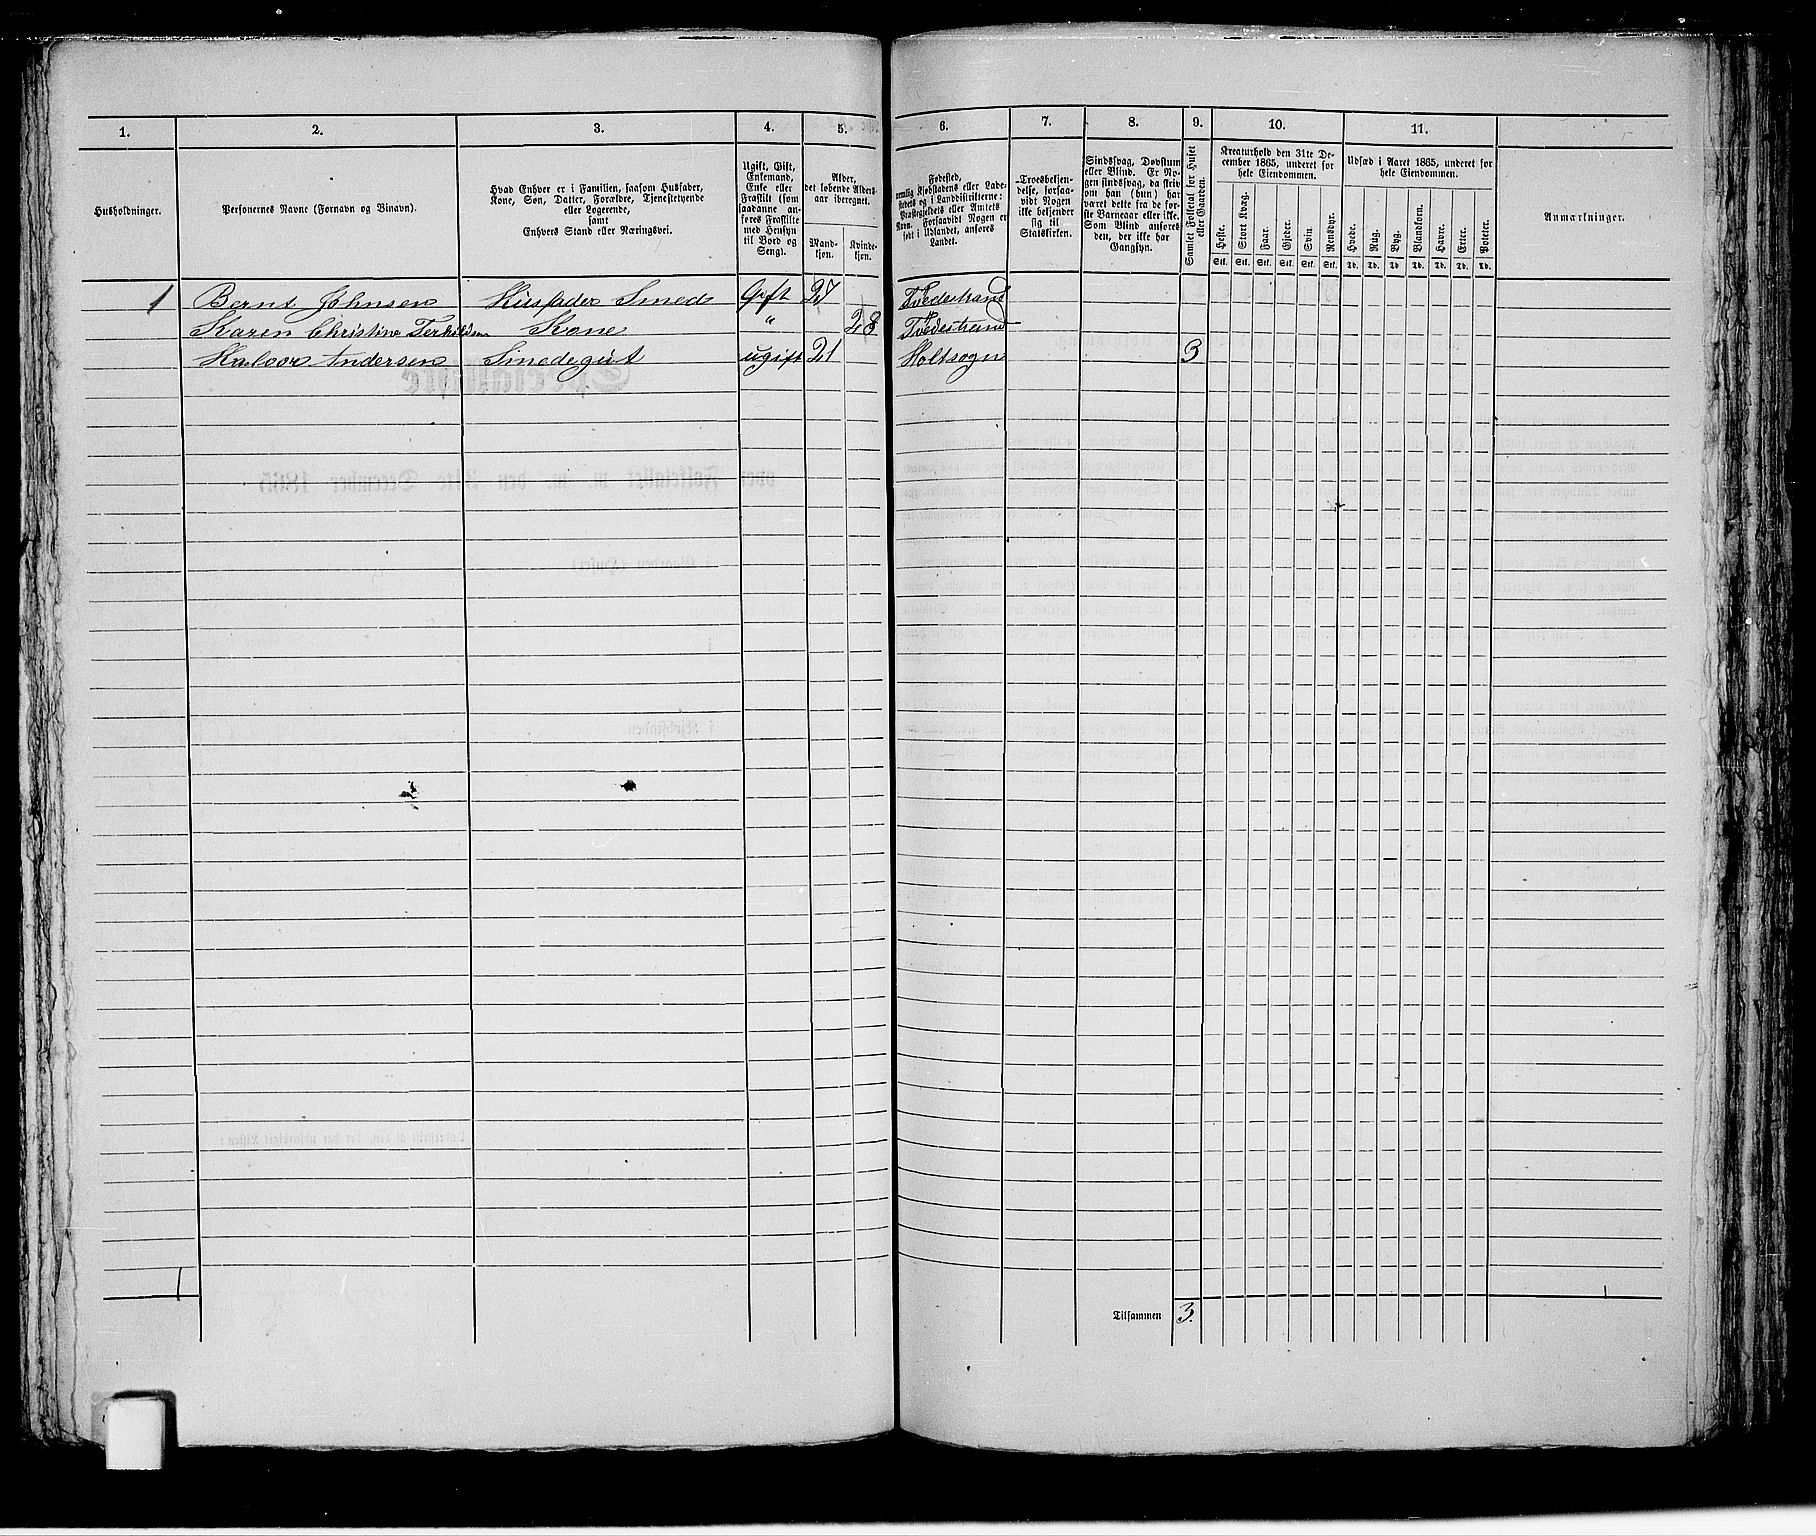 1. 2. 3. 4. 5. 6. 7. 8. 9. 10. 11.
Husholdninger.
Personernes Navne (Fornavn og Binavn).
Hvad Enhver er i Familien, saasom Husfader,
Kone, Søn, Datter, Forældre, Tjenestetyende
eller Logerende,
samt
Enhvers Stand eller Næringsvei.
Ugift, Gift,
Enkemand,
Enke eller
Fraskilt (som
saadanne an-
føres Fraskilte
med Hensyn
til Bord og
Seng).
Alder,
det løbende Alders-
aar iberegnet.
Mand-
kjøn.
Kvinde-
kjøn.
Fødested,
nemlig Kjøbstadens eller Lade-
stedets og i Landdistrikterne:
Præstegjeldets eller Amtets
Navn. Forsaavidt Nogen er
født i Udlandet, anføres
Landet.
Troesbekjen-
delse, forsaa-
vidt Nogen
ikke bekjender
sig til
Statskirken.
Sindssvag, Døvstum
eller Blind. Er No-
gen sindssvag, da skriv
om han (hun) har
været dette fra de før-
ste Barneaar eller ikke.
Som Blind anføres
den, der ikke har
Gangsyn.
Samlet Folketal for Huset
eller Gaarden.
Kreaturhold den 31te De-
cember 1865, underet for
hele Eiendommen.
Heste. Stort Kvæg. Faar. Gjeder. Svin. Rensdyr.
Stk. Stk. Stk. Stk. Stk. Stk.
Udsæd i Aaret 1865, underet for
hele Eiendommen.
Hvede. Rug. Byg. Blandkorn. Havre. Erter. Poteter.
Td. Td. Td. Td. Td. Td. Td.
Anmærkninger.
1 Bernt Johnsen Husfader Smed Gift 27 Tvedestrand
Karen Christine Terkildsen Kone " 28 Tvedestrand
Halvor Andersen Smedegut ugift 21 Holtsogn 3
Tilsammen 3.